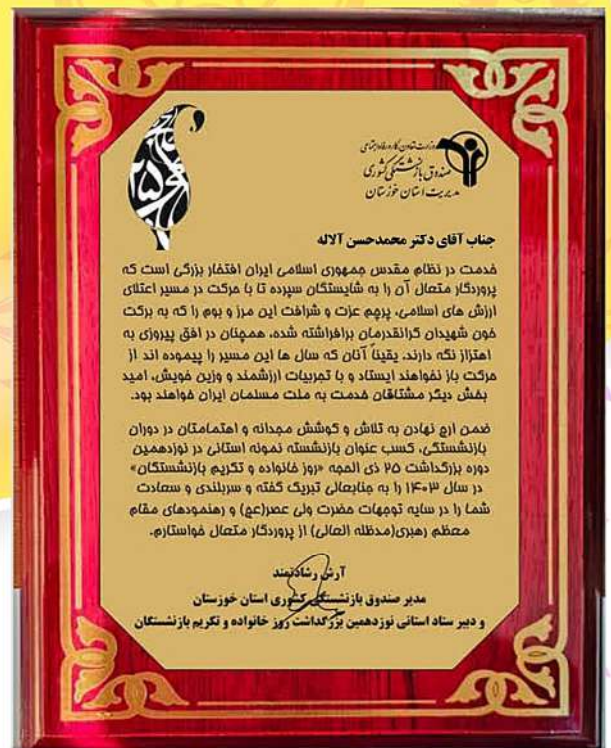 ۲۵
وزارت تعاون، کار و رفاه اجتماعی
صندوق بازنشستگی کشوری
مدیریت استان خوزستان
جناب آقای دکتر محمدحسن آلاله
خدمت در نظام مقدس جمهوری اسلامی ایران افتخار بزرگی است که
پروردگار متعال آن را به شایستگان سپرده تا با حرکت در مسیر اعتلای
ارزش های اسلامی، پرچم عزت و شرافت این مرز و بوم را که به برکت
خون شهیدان گرانقدرمان برافراشته شده، همچنان در افق پیروزی به
اهتزاز نگه دارند. یقیناً آنان که سال ها این مسیر را پیموده اند از
حرکت باز نخواهند ایستاد و با تجربیات ارزشمند و وزین خویش، امید
بخش دیگر مشتاقان خدمت به ملت مسلمان ایران خواهند بود.
ضمن ارج نهادن به تلاش و کوشش مجدانه و اهتمامتان در دوران
بازنشستگی، کسب عنوان بازنشسته نمونه استانی در نوزدهمین
دوره بزرگداشت ۲۵ ذی الحجه «روز خانواده و تکریم بازنشستگان»
در سال ۱۴۰۳ را به جنابعالی تبریک گفته و سربلندی و سعادت
شما را در سایه توجهات حضرت ولی عصر(عج) و رهنمودهای مقام
معظم رهبری(مدظله العالی) از پروردگار متعال خواستارم.
آرش رشادتمند
مدیر صندوق بازنشستگی کشوری استان خوزستان
و دبیر ستاد استانی نوزدهمین بزرگداشت روز خانواده و تکریم بازنشستگان